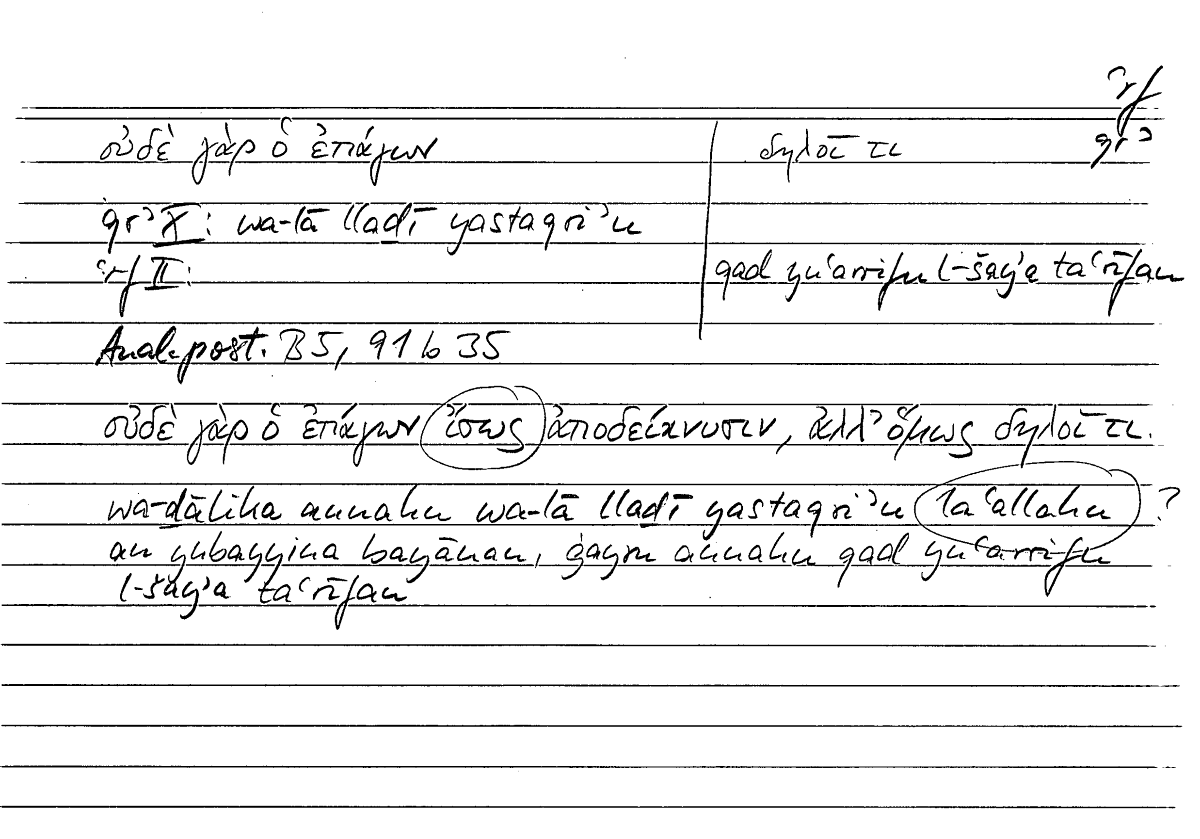 ʿrf
οὐδὲ γὰρ ὁ ἐπάγων δηλοῖ τι qrʾ
qrʾ X: wa-lā lladī yastaqriʾu
ʿrf II: qad yuʿarrifu l-šayʾa taʿrīfan
Anal. post. B5, 91 b 35
οὐδὲ γὰρ ὁ ἐπάγων ἴσως ἀποδείκνυσιν, ἀλλ' ὅμως δηλοῖ τι.
wa-ḏālika annahu wa-lā llaḏī yastaqriʾu laʿallahu ?
an yubayyina bayānan, ġayru annahu qad yuʿarrifu
l-šayʾa taʿrīfan